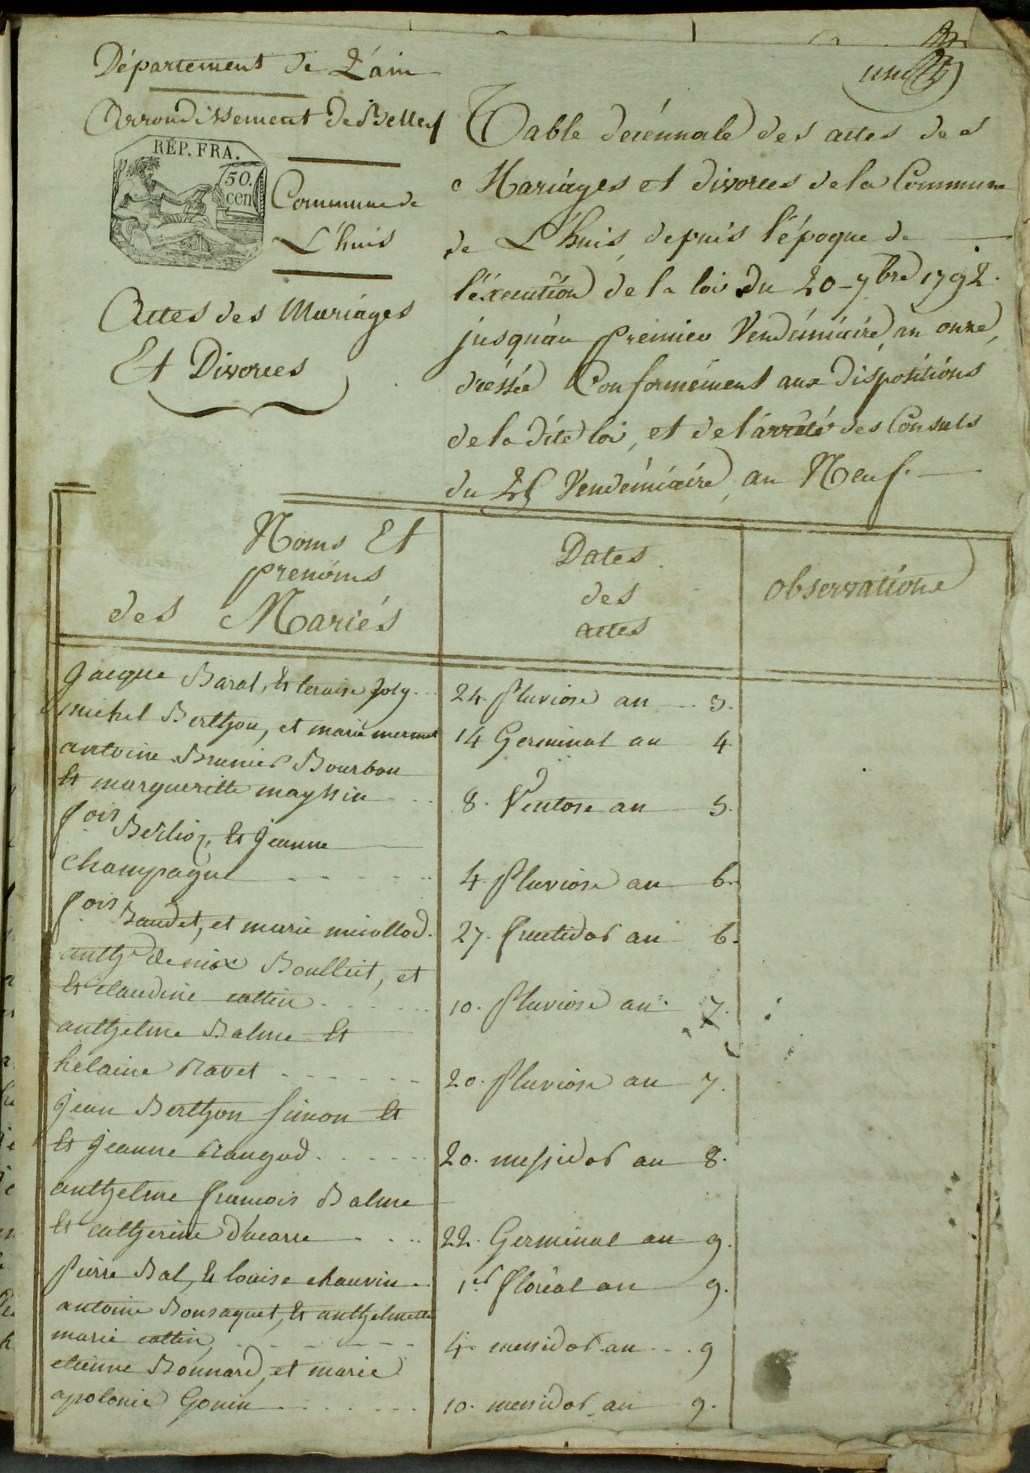 Département de L'ain
Arrondissement de Belley
RÉP. FRA.
50.
cen
Commune de
L'huis
Actes des Mariages
Et Divorces
Table décénnale des actes des
Mariages et divorces de la Commune
de L'huis, depuis l'époque de
l'éxecution de la loi du 20 7bre 1792.
jusqu'au premier Vendémiaire an onze,
dréssée Conformément aux dispositions
de la dite loi, et de l'arrêté des Consuls
du 25 Vendémiaire, an Neuf.
Noms Et
prenoms
des Mariés
Dates
des
actes
observations
Jacque Baral, et teraise Joly
24. pluviose an 3.
michel Berthon, et marie mermet
14 Germinal an 4
antoine Brunier Bourbon
Et margueritte
8. Ventose an 5.
fois Berlioz, Et Jeanne
Champagne
4. pluviose an 6.
fois Baudet, et marie
27. fructidor an 6.
anthe Boulliet, et
Et claudine cottin
10. pluviose an 7.
anthelme Balme Et
helaine Ravet
20. pluviose an 7.
Jean Berthon simon Et
Et Jeanne
20. messidor an 8.
anthelme francois Balme
Et catherine
22. Germinal an 9.
pierre Bal, Et louise chauvin
1er floréal an 9.
antoine Et anthelmette
marie cottin
4. messidor an 9
etienne Bonnard, et marie
apolonie Gonin
10. messidor an 9.